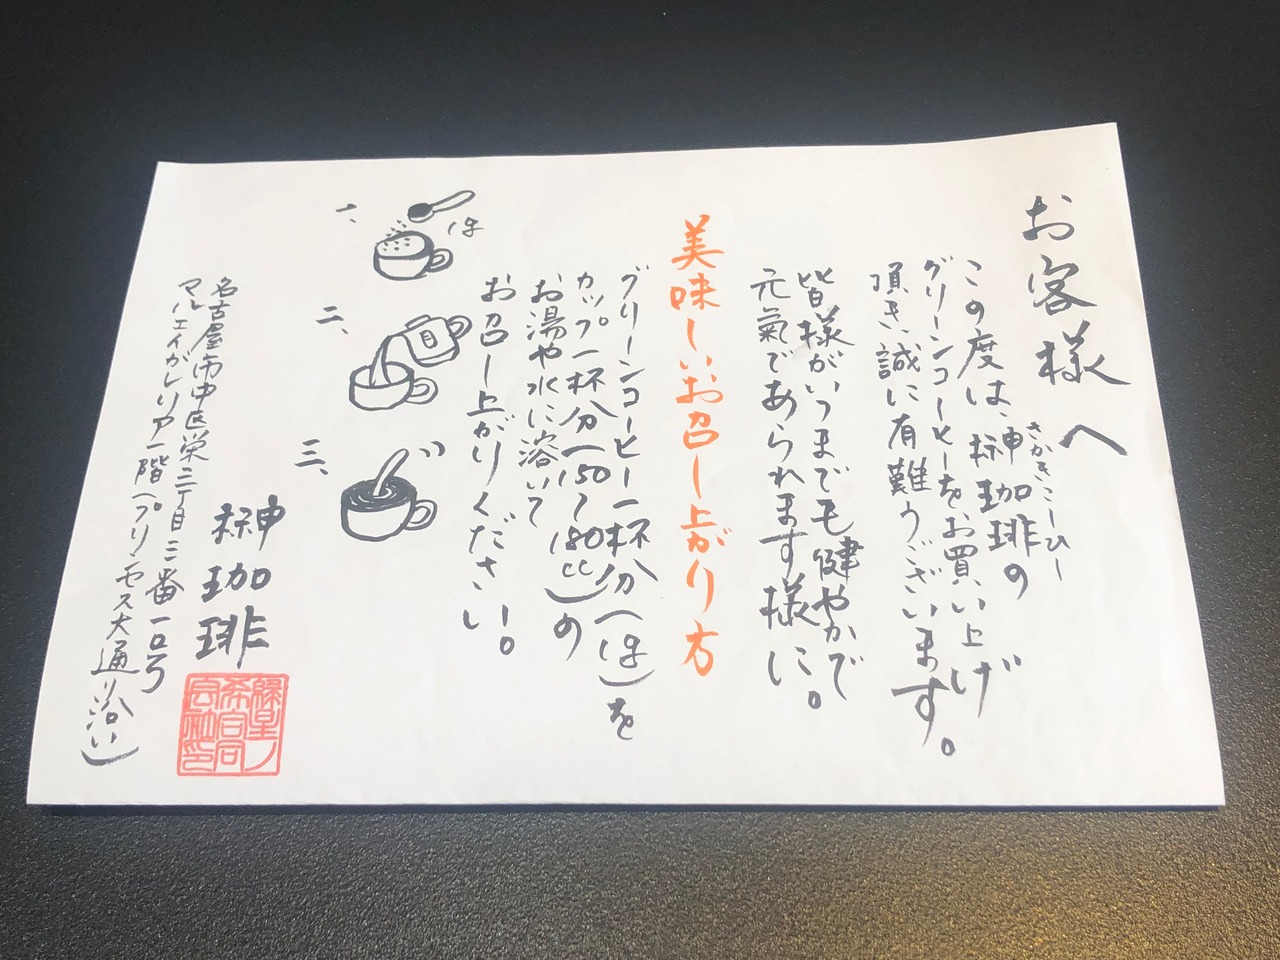 お客様へ
この度は、榊珈琲の
さかきこーひー
グリーンコーヒーをお買い上げ
頂き、誠に有難うございます。
皆様がいつまでも健やかで
元氣であられます様に。
美味しいお召し上がり方
グリーンコーヒー一杯分(1g)を
カップ一杯分(150〜180cc)の
お湯や水に溶いて
お召し上がりください。
一、
1g
二、
三、
榊珈琲
名古屋市中区栄三丁目三番一号
マルエイガレリア一階(プリンセス大通沿い)